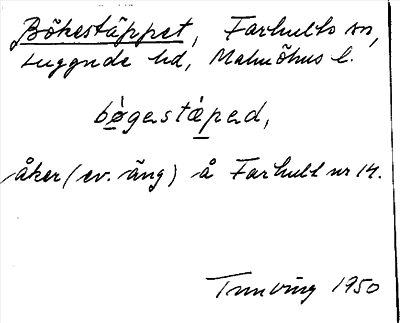 Bökestäppet, Farhults sn,
Luggude hd, Malmöhus l.
bø̀gestæ̀ped,
åker (ev. äng) å Farhult nr 14.
1950